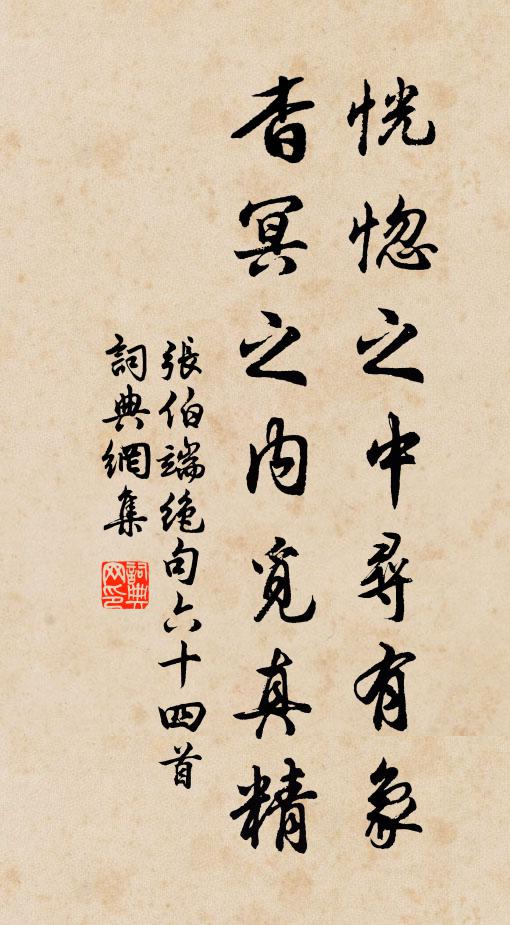 恍惚之中尋有象
杳冥之内覓真精
張伯端絶句六十四首
詞典網集
詞典
网印